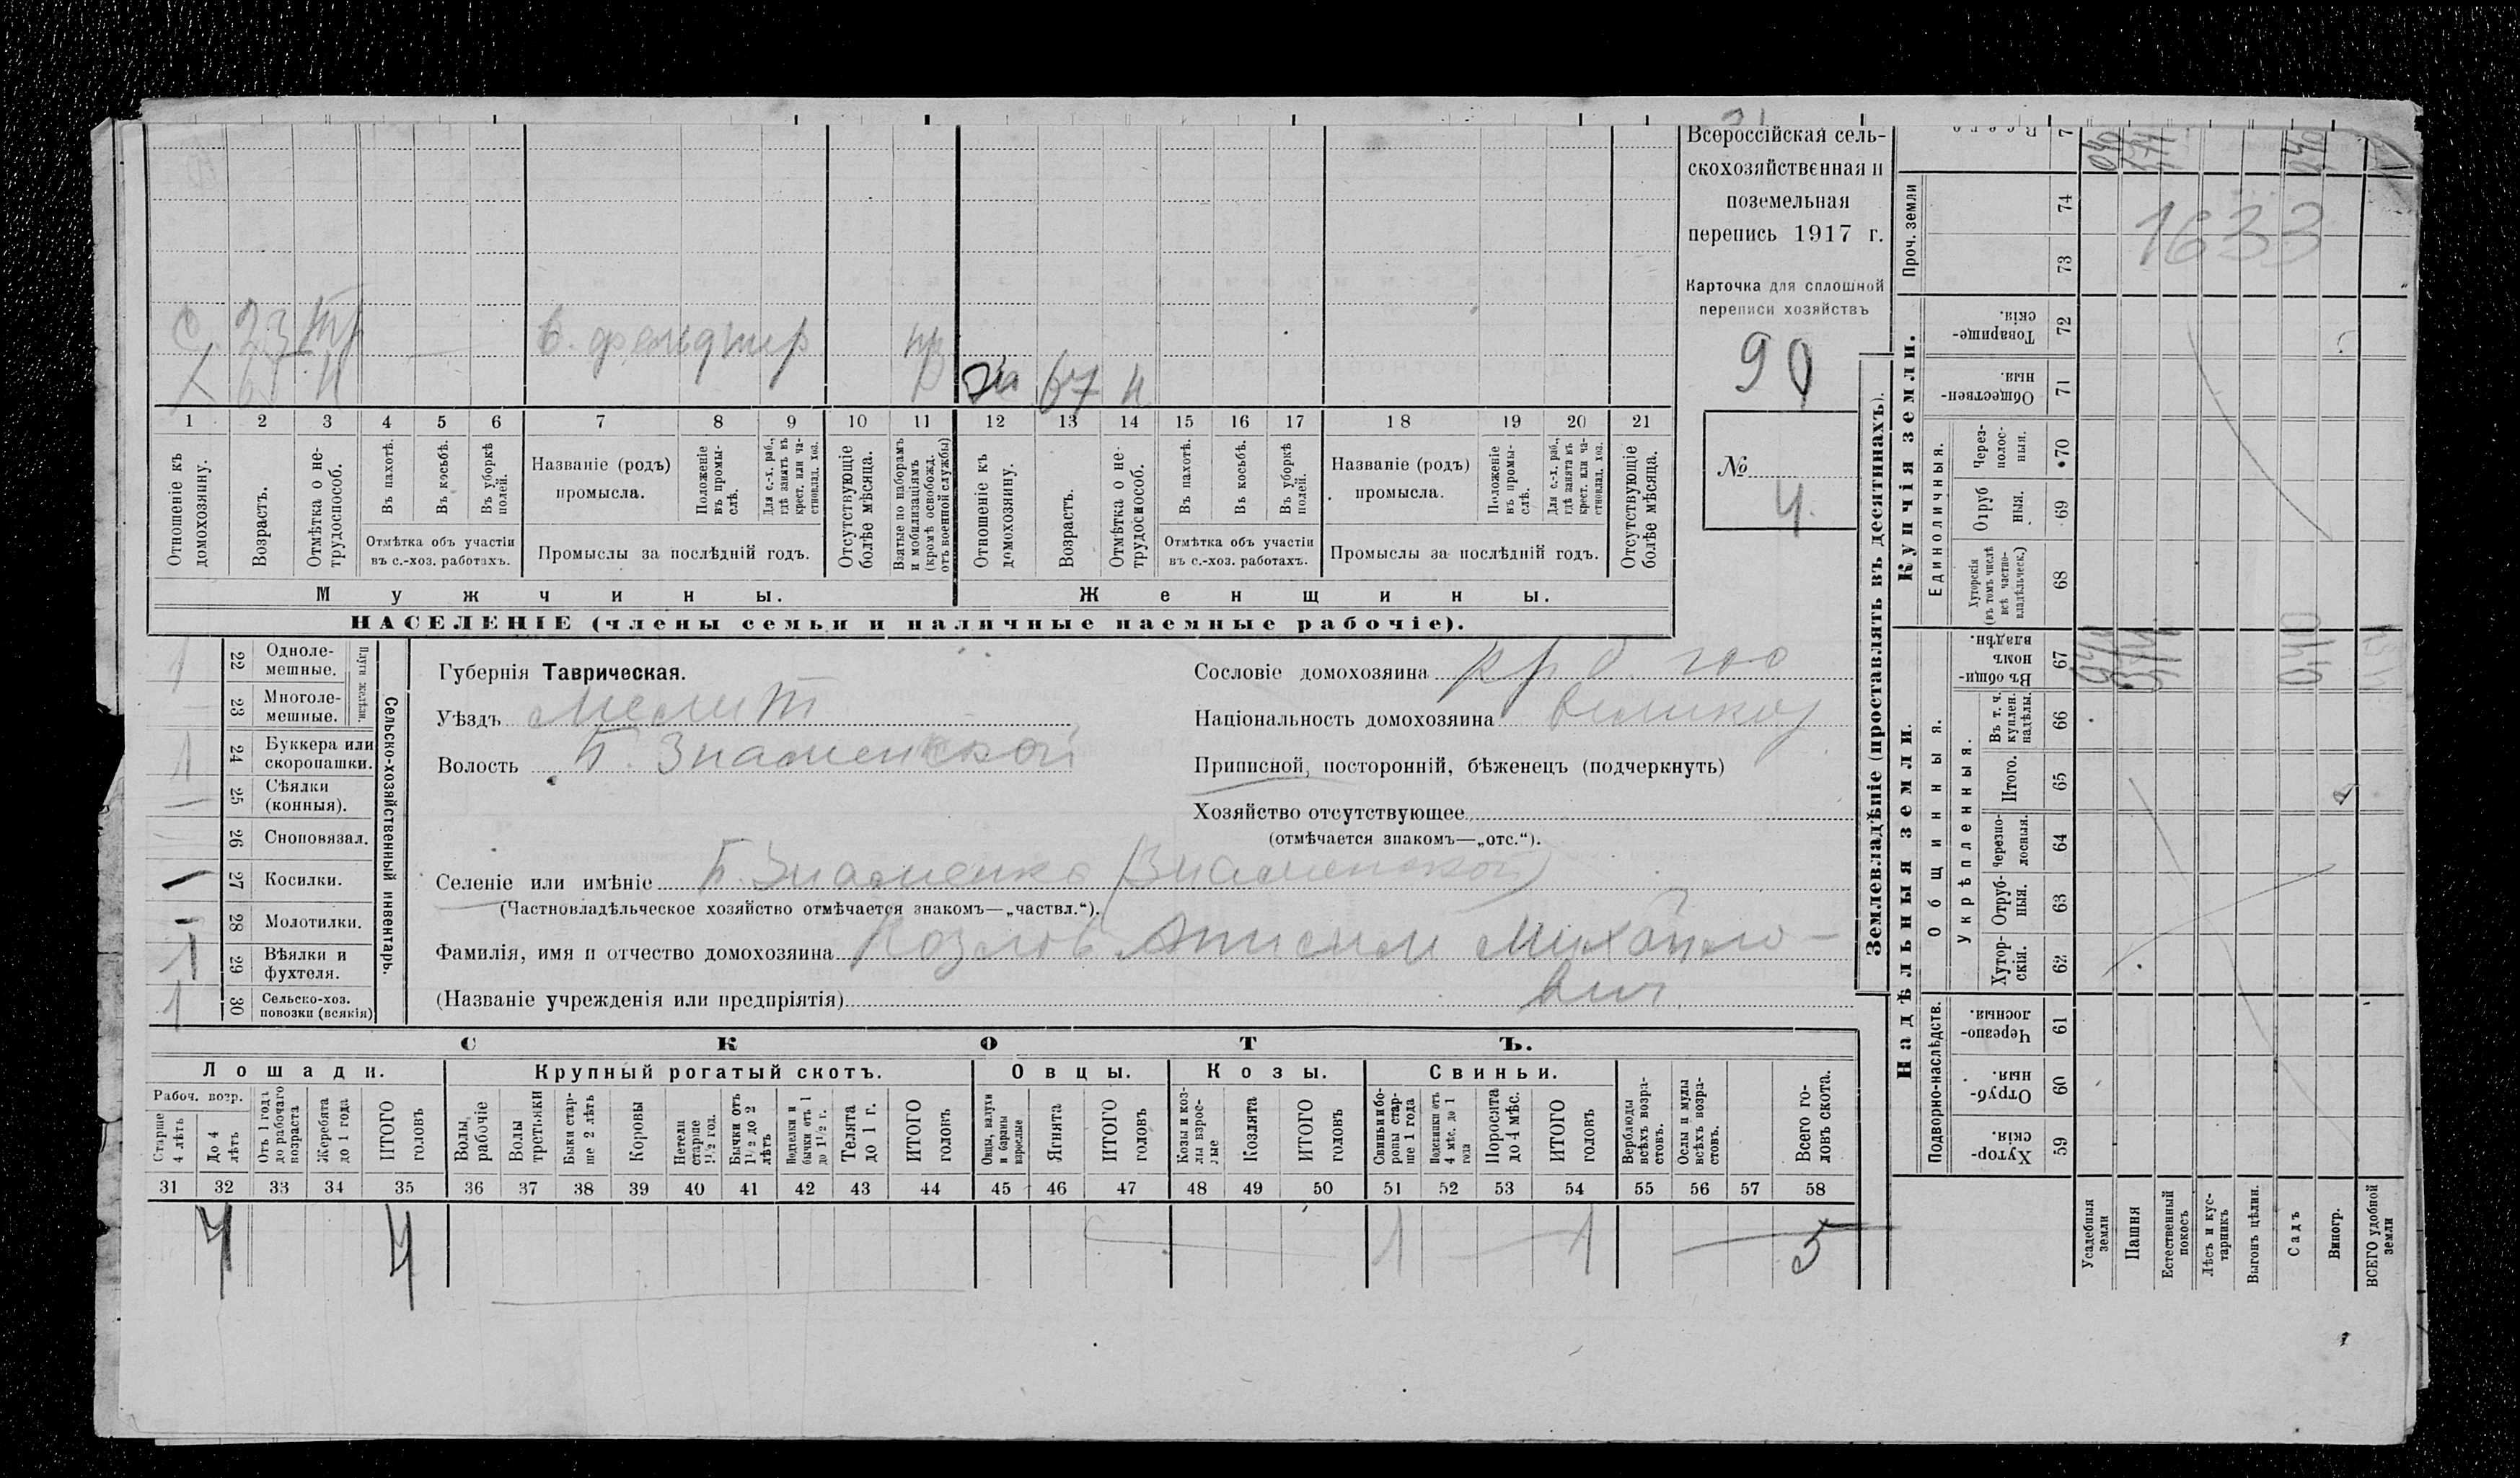 Всероссійская сель-
скохозяйственная и
поземельная
перепись 1917 г.
Карточка для сплошной
переписи хозяйствъ
90
№
4.
1633
С. 23
в. фельдшер
67 н
1 2 3 4 5 6 7 8 9 10 11 12 13 14 15 16 17 18 19 20 21
Отношеніе къ домохозяину.
Возрастъ.
Отмѣтка о не-трудоспособ.
Въ пахотѣ.
Въ косьбѣ.
Въ уборкѣ полей.
Отмѣтка объ участіи
въ с.-хоз. работахъ.
Названіе (родъ)
промысла.
Положеніе въ промы-слѣ.
Для с.-х. раб., гдѣ занятъ въ крест. или ча-стновлад. хоз.
Промыслы за послѣдній годъ.
Отсутствующіе болѣе мѣсяца.
Взятые по наборамъ и мобилизаціямъ (кромѣ освобожд. отъ военной службы)
Отношеніе къ домохозяину.
Возрастъ.
Отмѣтка о не-трудоспособ.
Въ пахотѣ.
Въ косьбѣ.
Въ уборкѣ полей.
Отмѣтка объ участіи
въ с.-хоз. работахъ.
Названіе (родъ)
промысла.
Положеніе въ промы-слѣ.
Для с.-х. раб., гдѣ занята въ крест. или ча-стновлад. хоз.
Промыслы за послѣдній годъ.
Отсутствующіе болѣе мѣсяца.
Мужчины.
Женщины.
НАСЕЛЕНІЕ (члены семьи и наличные наемные рабочіе).
1 22 Однолемешные.
23 Многолемешные.
Плуги желѣзн.
1 24 Буккера или скоропашки.
— 25 Сѣялки (конныя).
26 Сноповязал.
— 27 Косилки.
— 28 Молотилки.
1 29 Вѣялки и фухтеля.
1 30 Сельско-хоз. повозки (всякія)
Сельско-хозяйственный инвентарь.
Губернія Таврическая.
Уѣздъ Мелит
Волость Б. Знаменской
Сословіе домохозяина кр
Національность домохозяина великор
Приписной, посторонній, бѣженецъ (подчеркнуть)
Хозяйство отсутствующее
(отмѣчается знакомъ—„отс.“).
Селеніе или имѣніе Б. Знаменка (Знаменской)
(Частновладѣльческое хозяйство отмѣчается знакомъ—„частвл.“).
Фамилія, имя и отчество домохозяина Козлов Анисим Михайло-
(Названіе учрежденія или предпріятія) вич
СКОТЪ.
Лошади. Крупный рогатый скотъ. Овцы. Козы. Свиньи.
Рабоч. возр.
Старше 4 лѣтъ
До 4 лѣтъ
Отъ 1 года до рабочаго возраста
Жеребята до 1 года
ИТОГО головъ
Волы рабочіе
Волы третьяки
Быки стар-ше 2 лѣтъ
Коровы
Нетели старше 1½ год.
Бычки отъ 1½ до 2 лѣтъ
Подтелки и бычки отъ 1 до 1½ г.
Телята до 1 г.
ИТОГО головъ
Овцы, валухи и бараны взрослые
Ягнята
ИТОГО головъ
Козы и коз-лы взрос-лые
Козлята
ИТОГО головъ
Свиньи и бо-ровы стар-ше 1 года
Подсвинки отъ 4 мѣс. до 1 года
Поросята до 4 мѣс.
ИТОГО головъ
Верблюды всѣхъ возра-стовъ.
Ослы и мулы всѣхъ возра-стовъ.
Всего го-ловъ скота.
31 32 33 34 35 36 37 38 39 40 41 42 43 44 45 46 47 48 49 50 51 52 53 54 55 56 57 58
4 4 1 1 5
Землевладѣніе (проставлять въ десятинахъ).
Купчія земли.
Надѣльныя земли.
Всего
Проч. земли
74
73
Товарище-скія. 72
Обществен-ныя. 71
Единоличныя.
Через-полос-ныя. 70
Отруб ныя. 69
Хуторскія (въ томъ числѣ всѣ частно-владѣльческ.) 68
Общинныя.
Въ общин-номъ владѣн. 67
Укрѣпленныя.
Въ т. ч. куплен. надѣлы. 66
Итого. 65
Черезпо-лосныя. 64
Отруб-ныя. 63
Хутор-скія. 62
Подворно-наслѣдств.
Черезпо-лосныя. 61
Отруб-ныя. 60
Хутор-скія. 59
Усадебныя земли
Пашня
Естественный покосъ
Лѣсъ и кус-тарникъ
Выгонъ цѣлин.
Садъ
Виногр.
ВСЕГО удобной земли